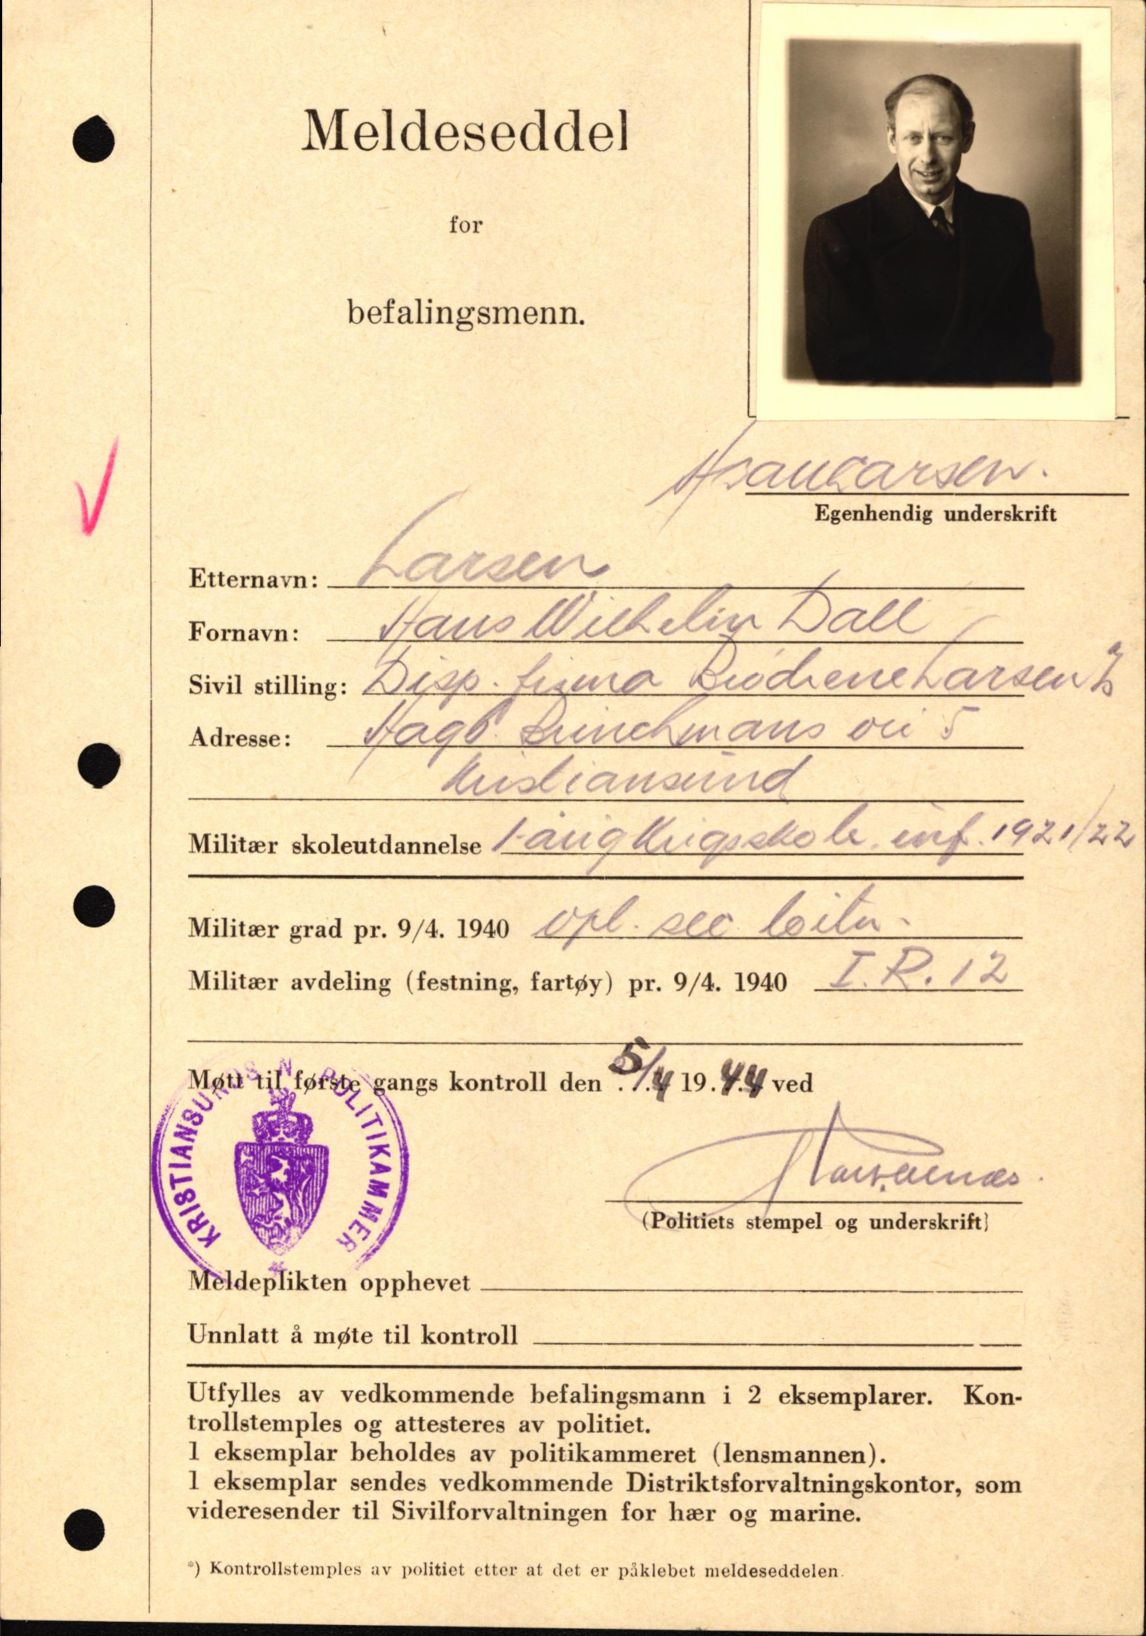 Meldeseddel
for
befalingsmenn.
Hans Larsen.
Egenhendig underskrift
Etternavn: Larsen
Fornavn: Hans Wilhelm Dall
Sivil stilling: Disp. firma Brødrene Larsen
Adresse: Hagb. Brinchmans vei 5
Kristiansund
Militær skoleutdannelse 1-årig Krigsskole inf. 1921/22
Militær grad pr. 9/4. 1940 vpl. sec løitn.
Militær avdeling (festning, fartøy) pr. 9/4. 1940 I.R. 12
Møtt til første gangs kontroll den 5/4 1944 ved
KRISTIANSUNDS N. POLITIKAMMER
(Politiets stempel og underskrift)
Meldeplikten opphevet
Unnlatt å møte til kontroll
Utfylles av vedkommende befalingsmann i 2 eksemplarer. Kon-
trollstemples og attesteres av politiet.
1 eksemplar beholdes av politikammeret (lensmannen).
1 eksemplar sendes vedkommende Distriktsforvaltningskontor, som
videresender til Sivilforvaltningen for hær og marine.
*) Kontrollstemples av politiet etter at det er påklebet meldeseddelen.